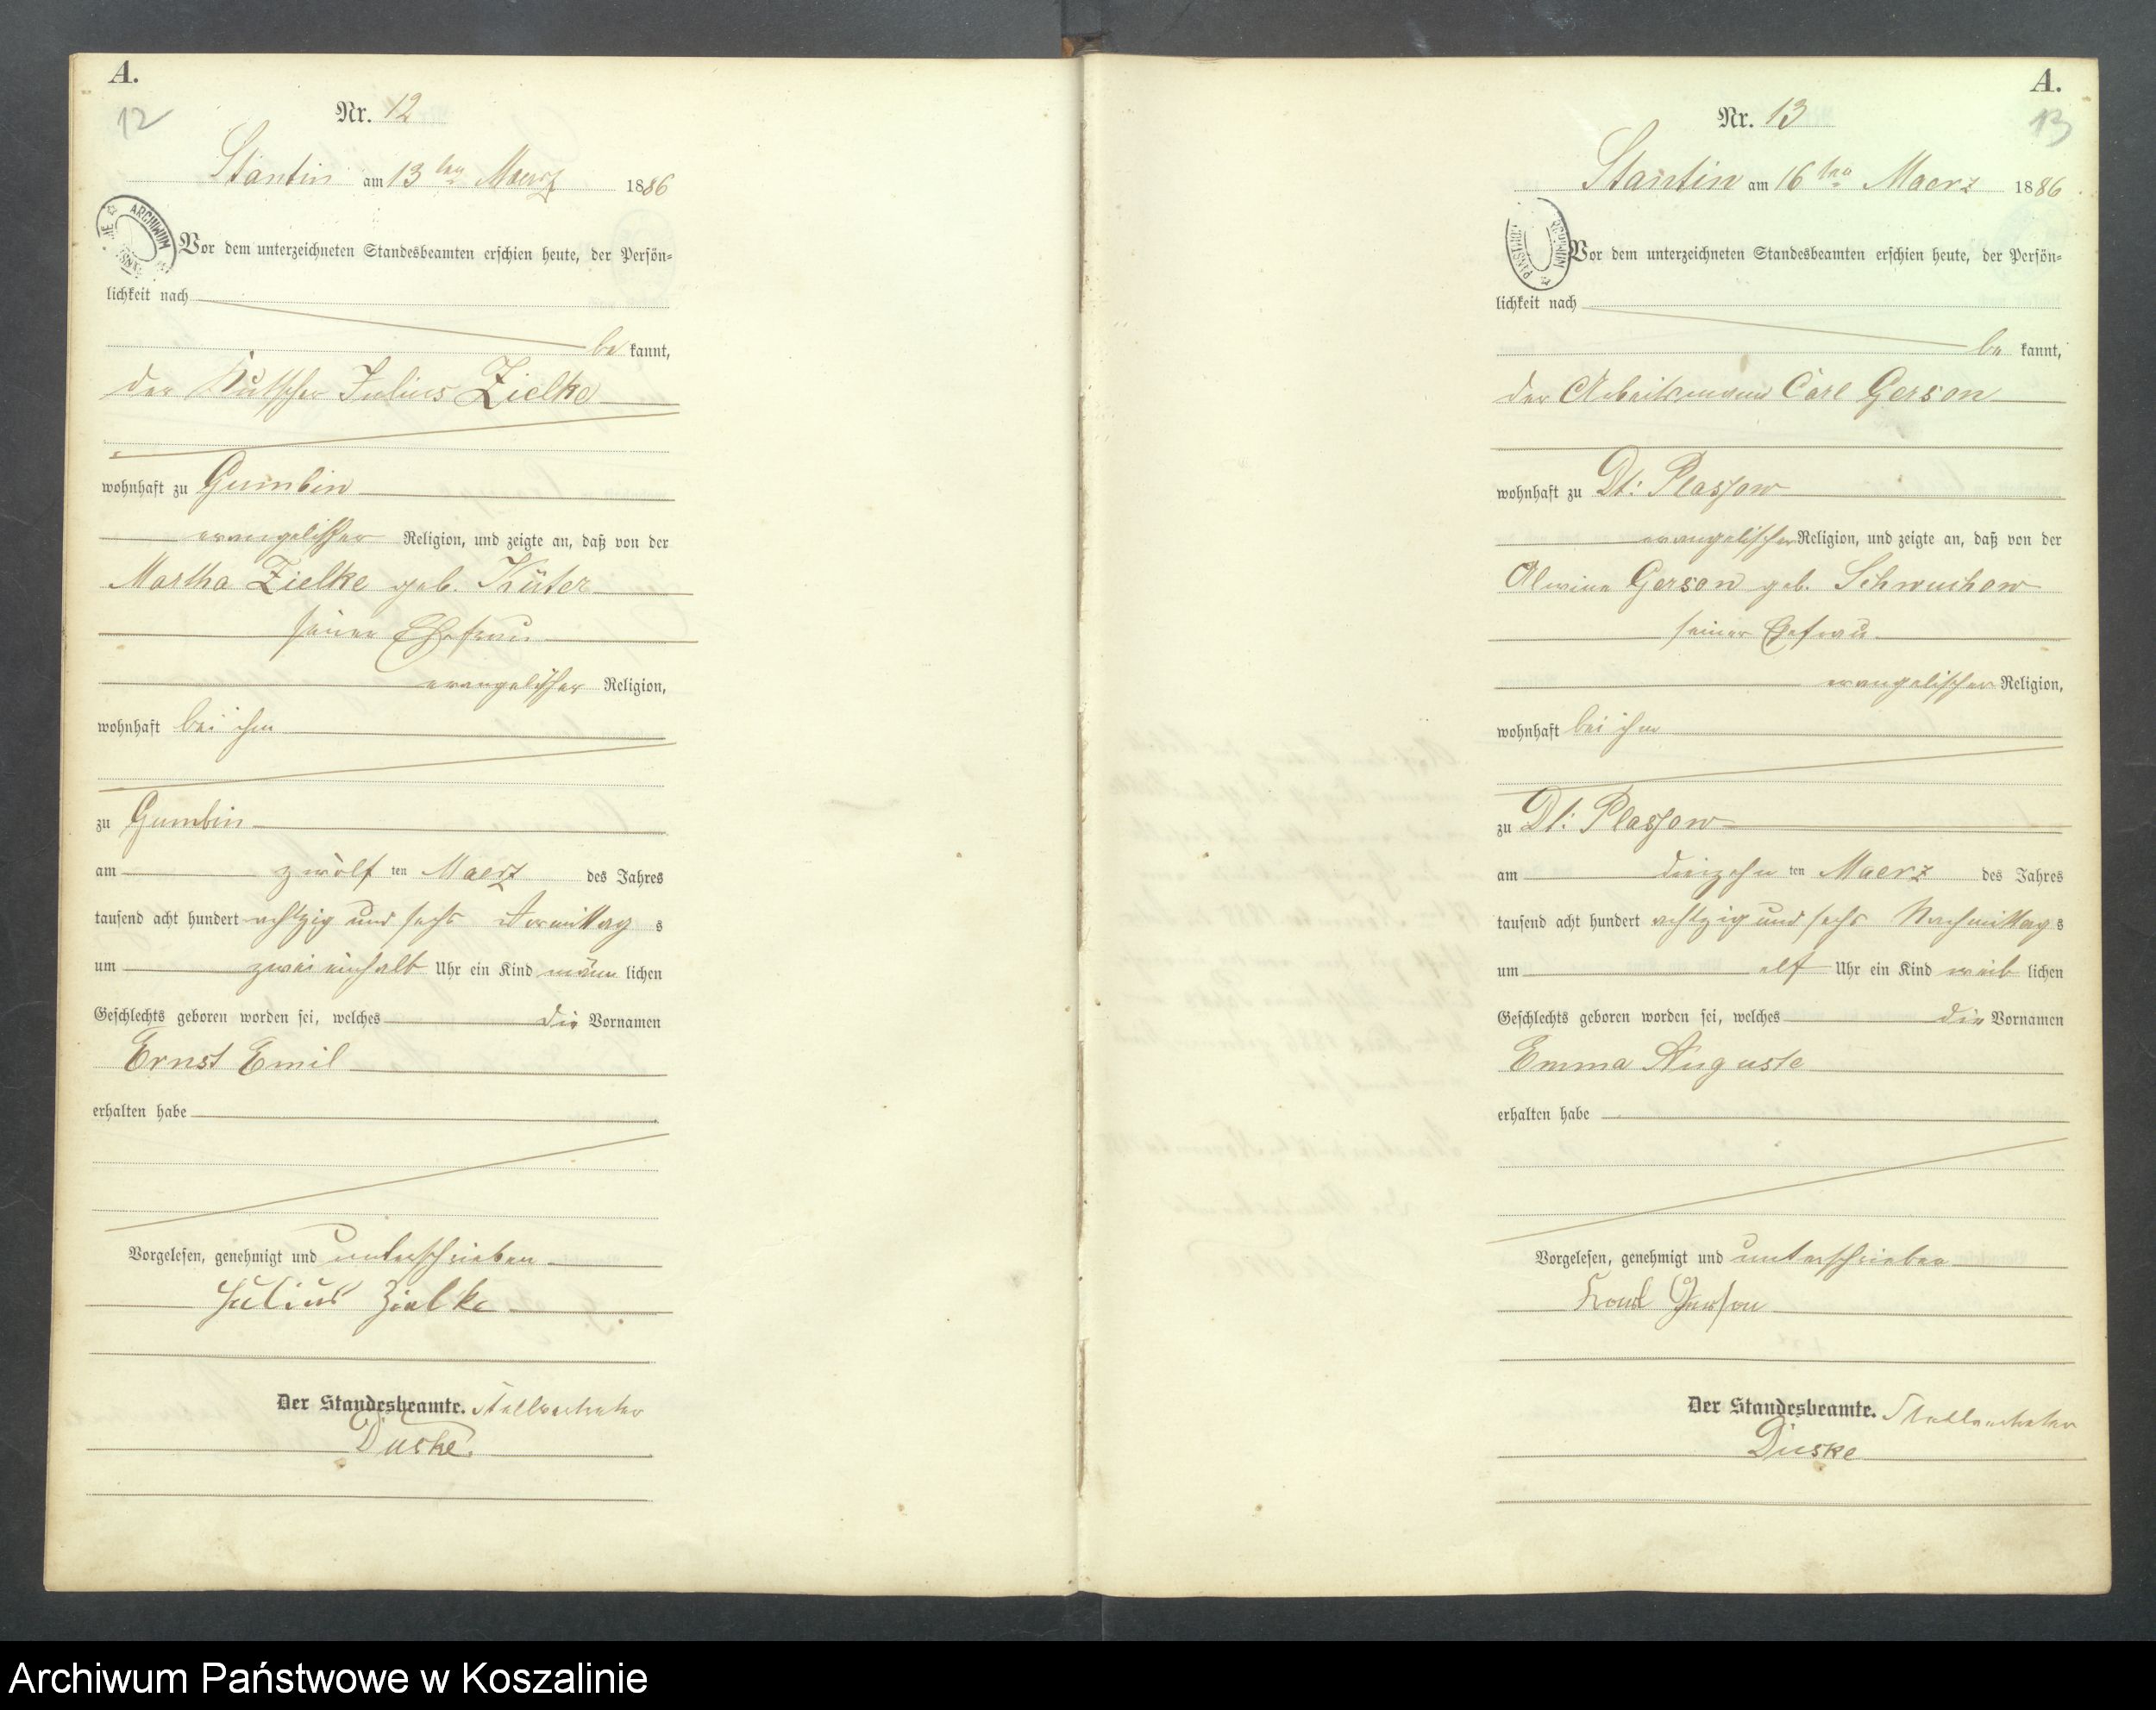 A.
12
Nr. 12
Stantin am 13ten Maerz 1886
ARCHIWUM
Vor dem unterzeichneten Standesbeamten erschien heute, der Persön-
lichkeit nach
be kannt,
der Kutscher Julius Zielke
wohnhaft zu Gumbin
evangelischer Religion, und zeigte an, daß von der
Martha Zielke geb. Küter
seiner Ehefrau
evangelischer Religion,
wohnhaft bei ihm
zu Gumbin
am zwölf ten Maerz des Jahres
tausend acht hundert achtzig und sechs Vormittag s
um zwei einhalb Uhr ein Kind männ lichen
Geschlechts geboren worden sei, welches die Vornamen
Ernst Emil
erhalten habe
Vorgelesen, genehmigt und unterschrieben
Julius Zielke
Der Standesbeamte. Stellvertreter
Duske.
A.
13
Nr. 13
Stantin am 16ten Maerz 1886
ARCHIWUM PAŃSTWOW
Vor dem unterzeichneten Standesbeamten erschien heute, der Persön-
lichkeit nach
be kannt,
der Arbeitsmann Carl Gerson
wohnhaft zu Dt: Plassow
evangelischer Religion, und zeigte an, daß von der
Alwine Gerson geb. Schwuchow
seiner Ehefrau
evangelischer Religion,
wohnhaft bei ihm
zu Dt: Plassow
am dreizehn ten Maerz des Jahres
tausend acht hundert achtzig und sechs Nachmittag s
um elf Uhr ein Kind weib lichen
Geschlechts geboren worden sei, welches die Vornamen
Emma Auguste
erhalten habe
Vorgelesen, genehmigt und unterschrieben
Karl Gerson
Der Standesbeamte. Stellvertreter
Duske
Archiwum Państwowe w Koszalinie